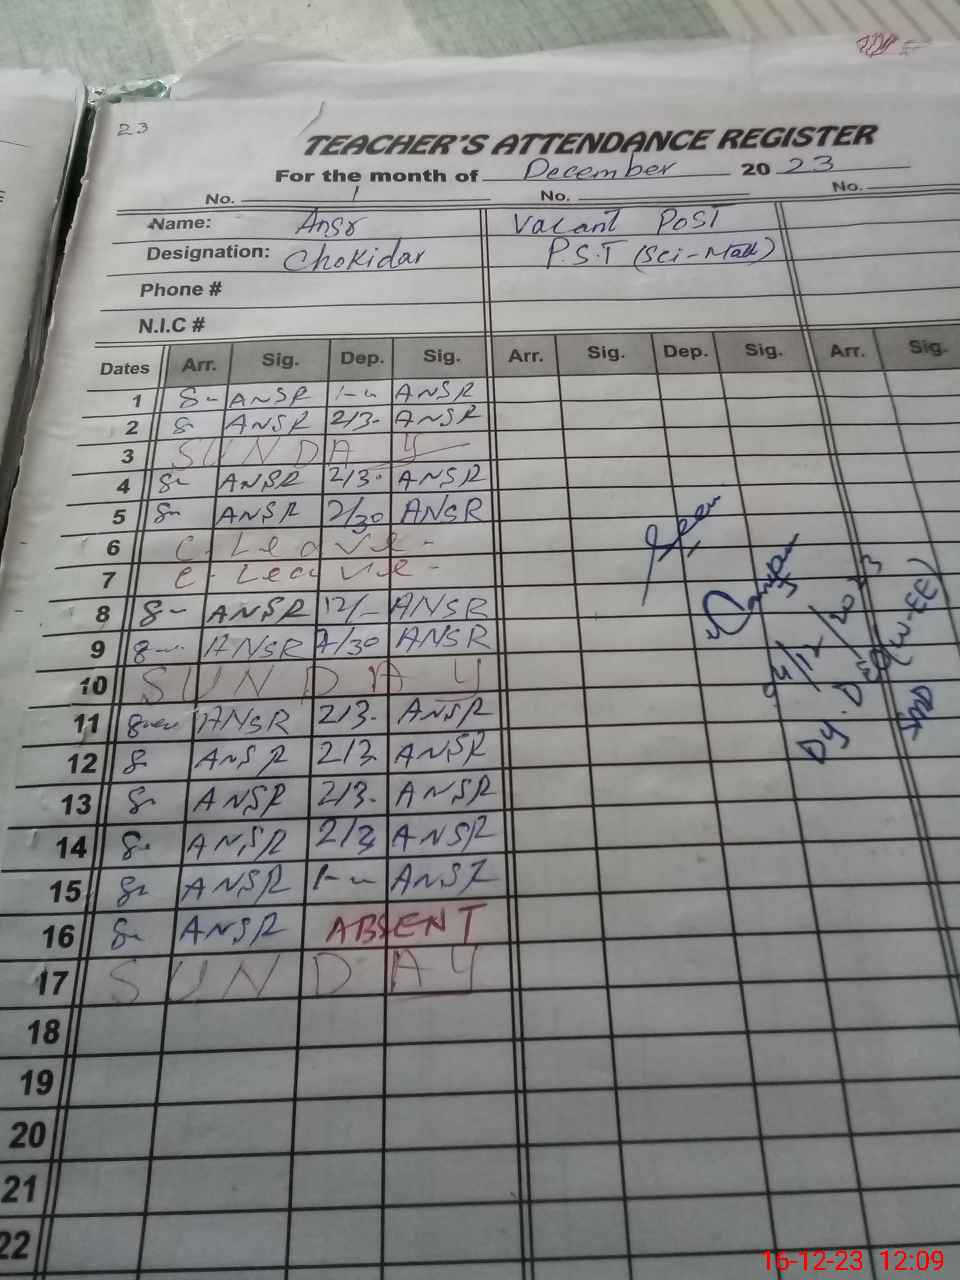 23
TEACHER'S ATTENDANCE REGISTER
For the month of December 2023
No. 1 No. No.
Name: Ansr Vacant Post
Designation: Chokidar P.S.T (Sci-Math)
Phone #
N.I.C #
Dates Arr. Sig. Dep. Sig. Arr. Sig. Dep. Sig. Arr. Sig.
1 8- ANSR 1- ANSR
2 8 ANSR 2/3- ANSR
3 SUNDAY
4 8- ANSR 2/30 ANSR
5 8- ANSR 2/30 ANSR
6 C. Leave -
7 C. Leave -
8 8- ANSR 12/- ANSR
9 8- ANSR 2/30 ANSR
10 SUNDAY
11 8- ANSR 2/3. ANSR
12 8 ANSR 2/3 ANSR
13 8- ANSR 2/3. ANSR
14 8- ANSR 2/3 ANSR
15 8- ANSR 1- ANSR
16 8- ANSR ABSENT
17 SUNDAY
18
19
20
21
22
Seen
04/12/2023
Dy. DEO (W-EE)
16-12-23 12:09